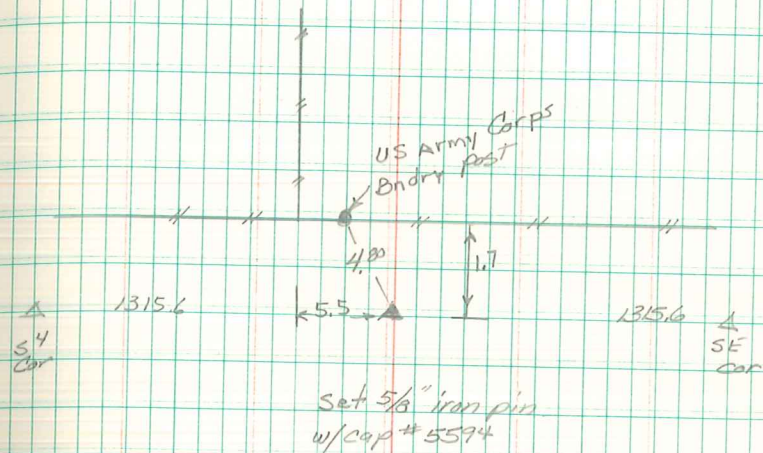 US Army Corps
Bndry post
4.00
1.7
1315.6
5.5
1315.6
S4
Cor
SE
Cor
Set 5/8" iron pin
w/cap #5594